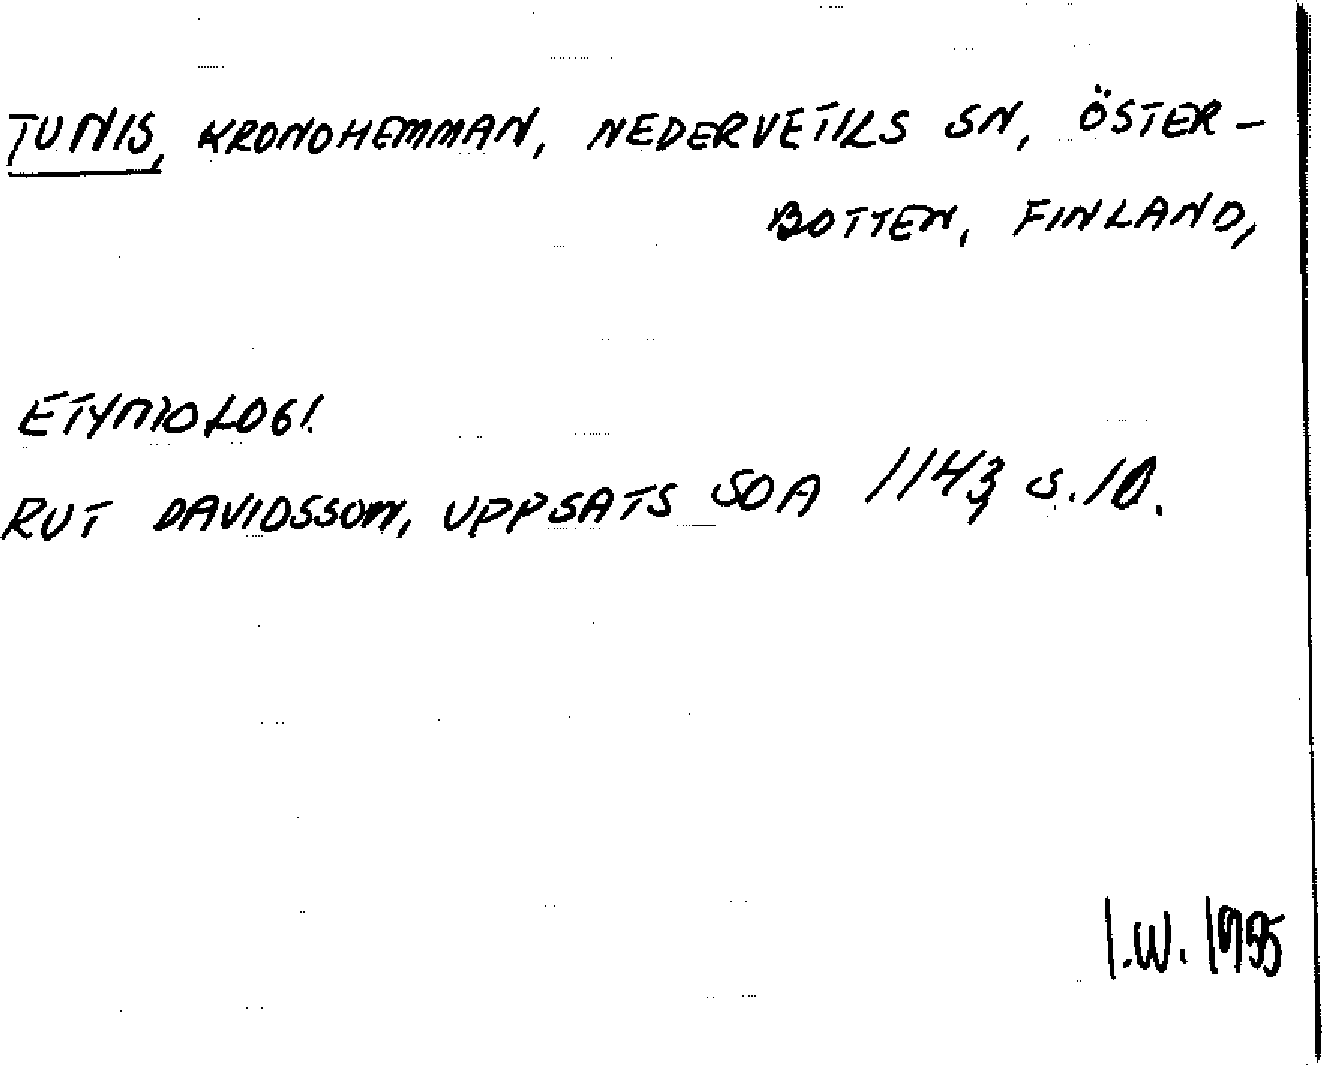 TUNIS, KRONOHEMMAN, NEDERVETILS SN, ÖSTER-
BOTTEN, FINLAND,
ETYMOLOGI.
RUT DAVIDSSON, UPPSATS SOA 1143 S. 10.
I.W. 1955